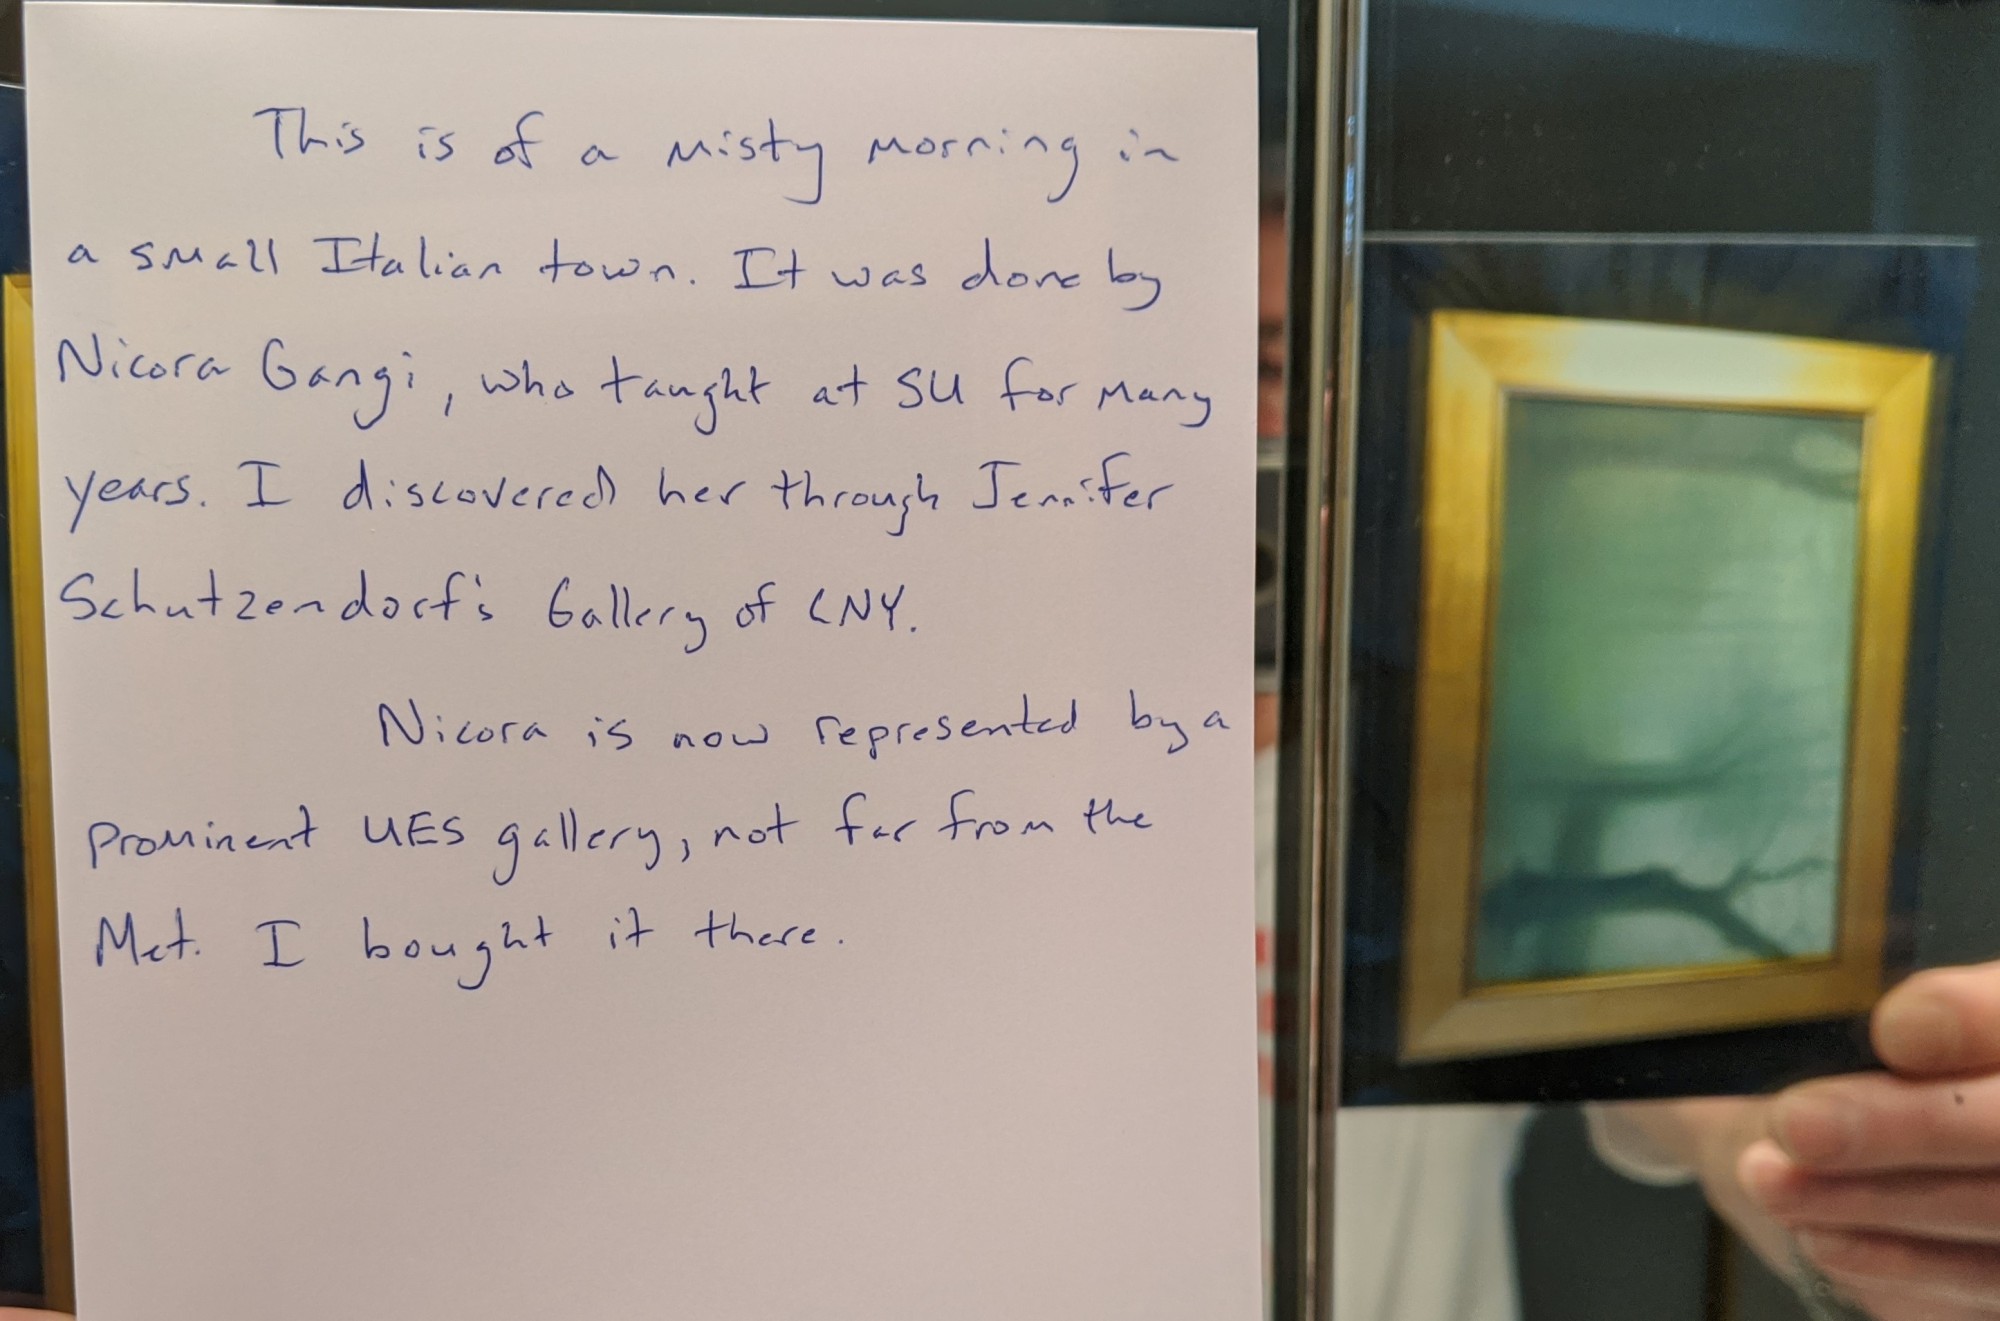 This is of a misty morning in
a small Italian town. It was done by
Nicora Gangi, who taught at SU for many
years. I discovered her through Jennifer
Schutzendorf's Gallery of CNY.
Nicora is now represented by a
prominent UES gallery, not far from the
Met. I bought it there.